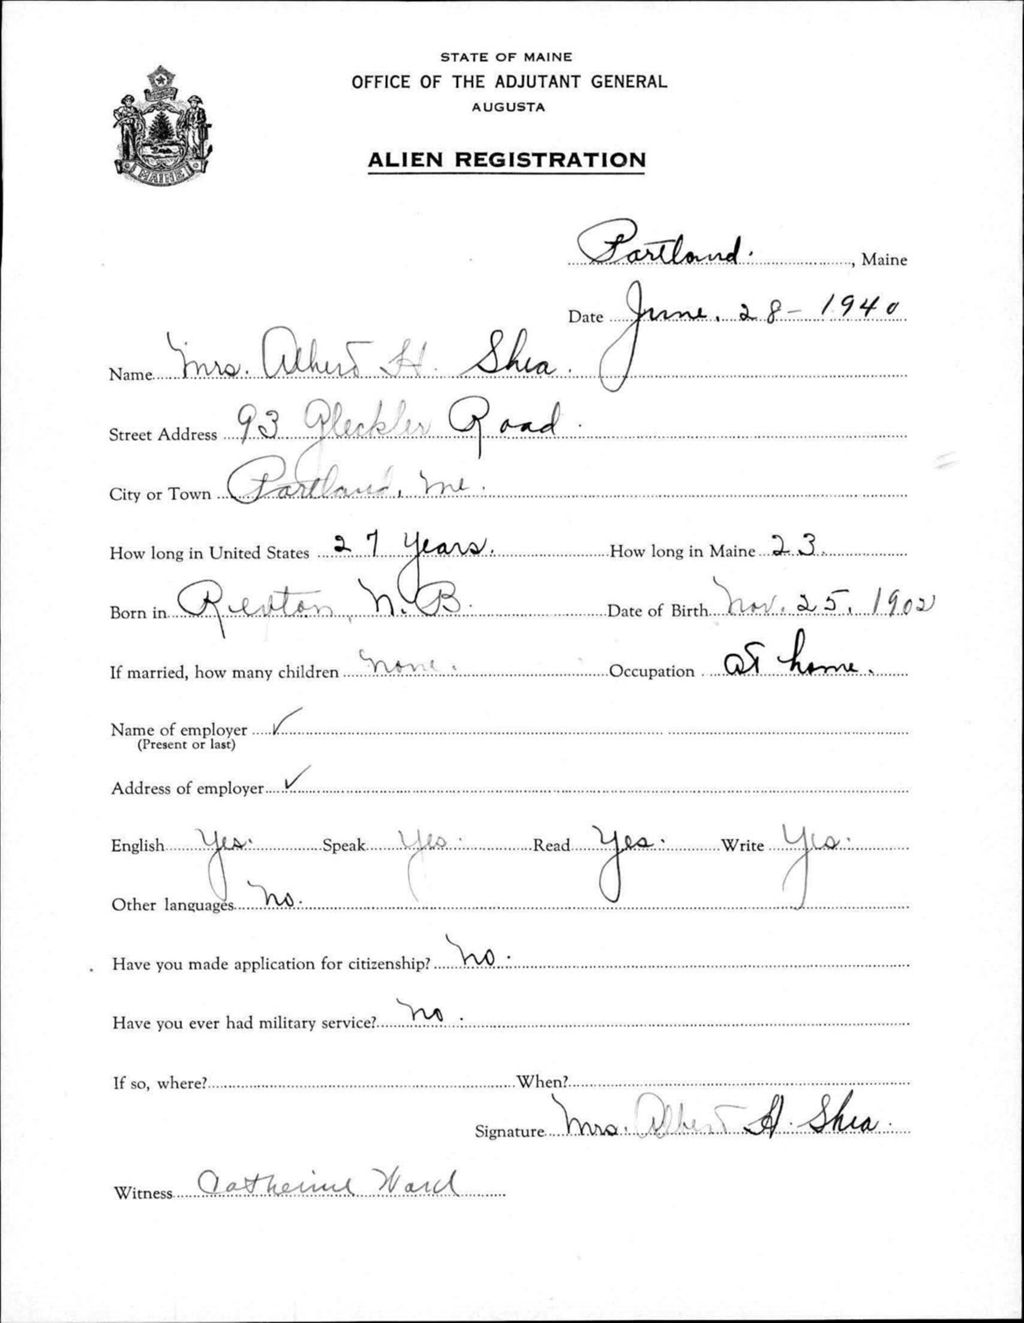 STATE OF MAINE
OFFICE OF THE ADJUTANT GENERAL
AUGUSTA
MAINE
ALIEN REGISTRATION
Portland. , Maine
Date June. 28 - 1940
Name Mrs. Albert H. Shea.
Street Address 93 Gleckler Road.
City or Town Portland, Me.
How long in United States 27 Years. How long in Maine 23.
Born in Rexton, N. B. Date of Birth Nov. 25, 1902
If married, how many children None. Occupation at home.
Name of employer ✓
(Present or last)
Address of employer ✓
English Yes. Speak Yes. Read Yes. Write Yes.
Other languages No.
Have you made application for citizenship? No.
Have you ever had military service? No.
If so, where? When?
Signature Mrs. Albert H. Shea.
Witness Catherine Ward